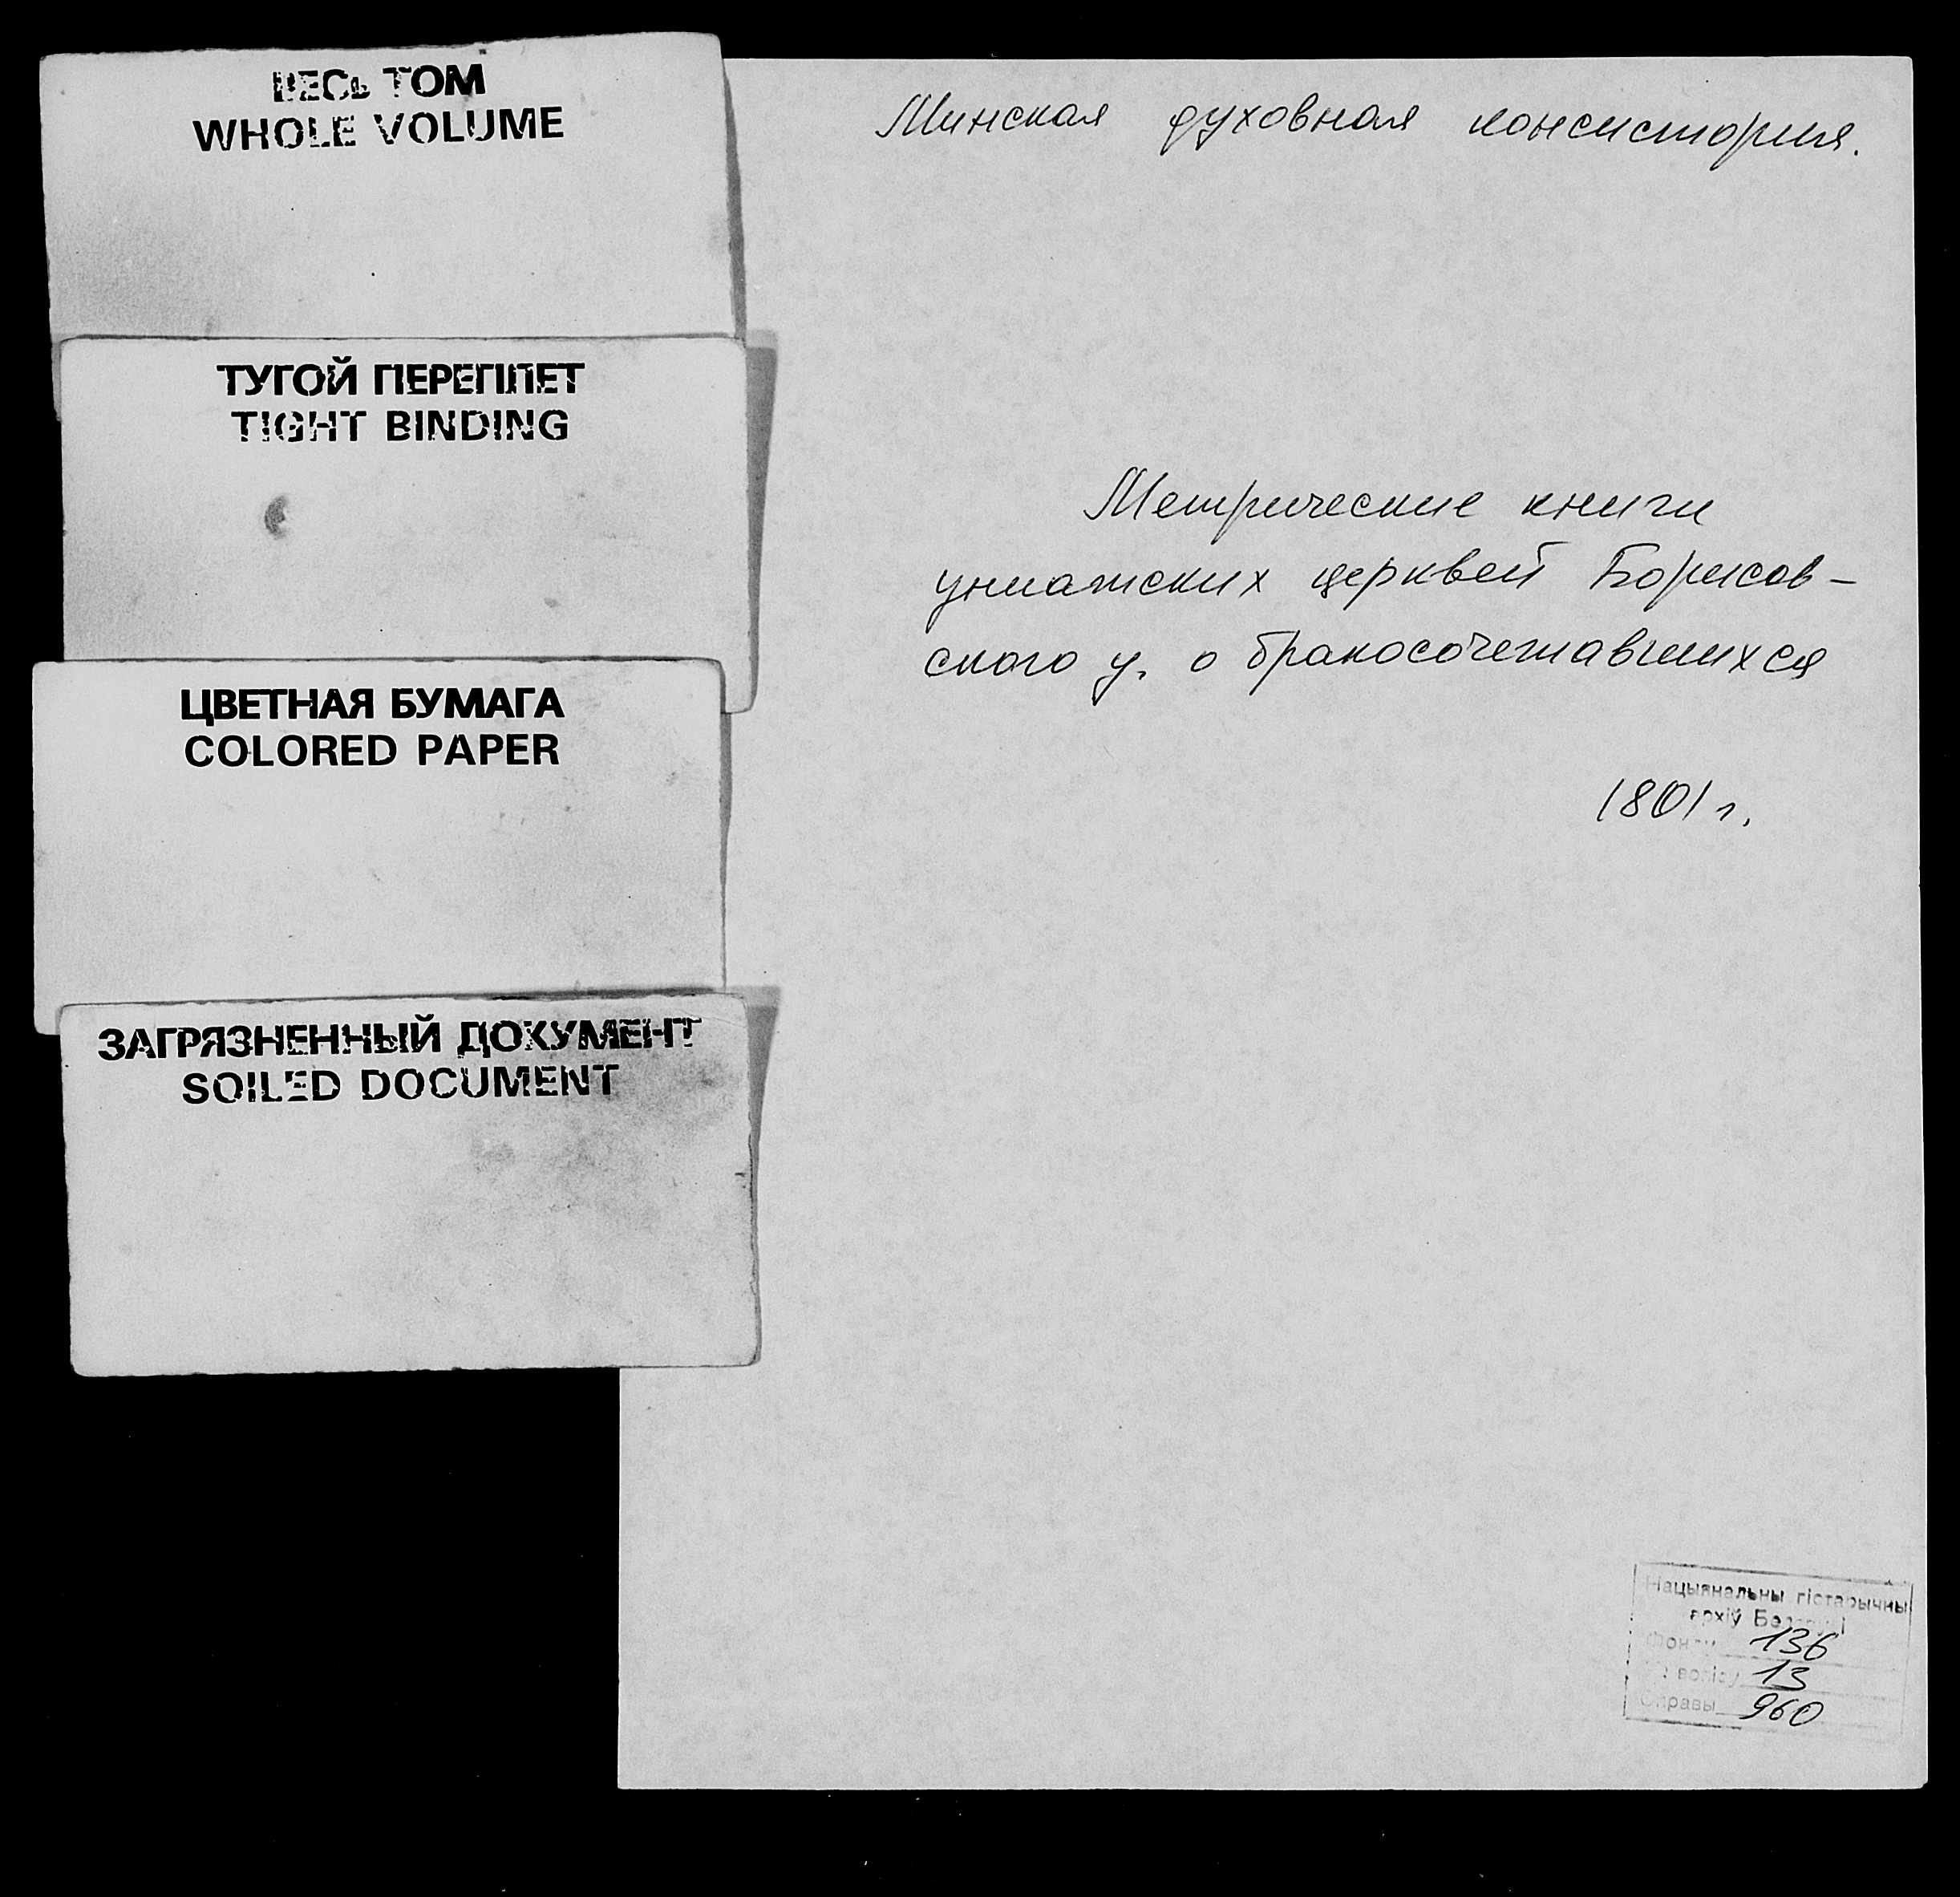 ВЕСЬ ТОМ
WHOLE VOLUME
ТУГОЙ ПЕРЕПЛЕТ
TIGHT BINDING
ЦВЕТНАЯ БУМАГА
COLORED PAPER
ЗАГРЯЗНЕННЫЙ ДОКУМЕНТ
SOILED DOCUMENT
Минская духовная консистория.
Метрические книги
униатских церквей Борисов-
ского у. о бракосочетавшихся
1801 г.
Нацыянальны гістарычны
архіў Беларусі
Фонды 136
№ вопісу 13
Справы 960